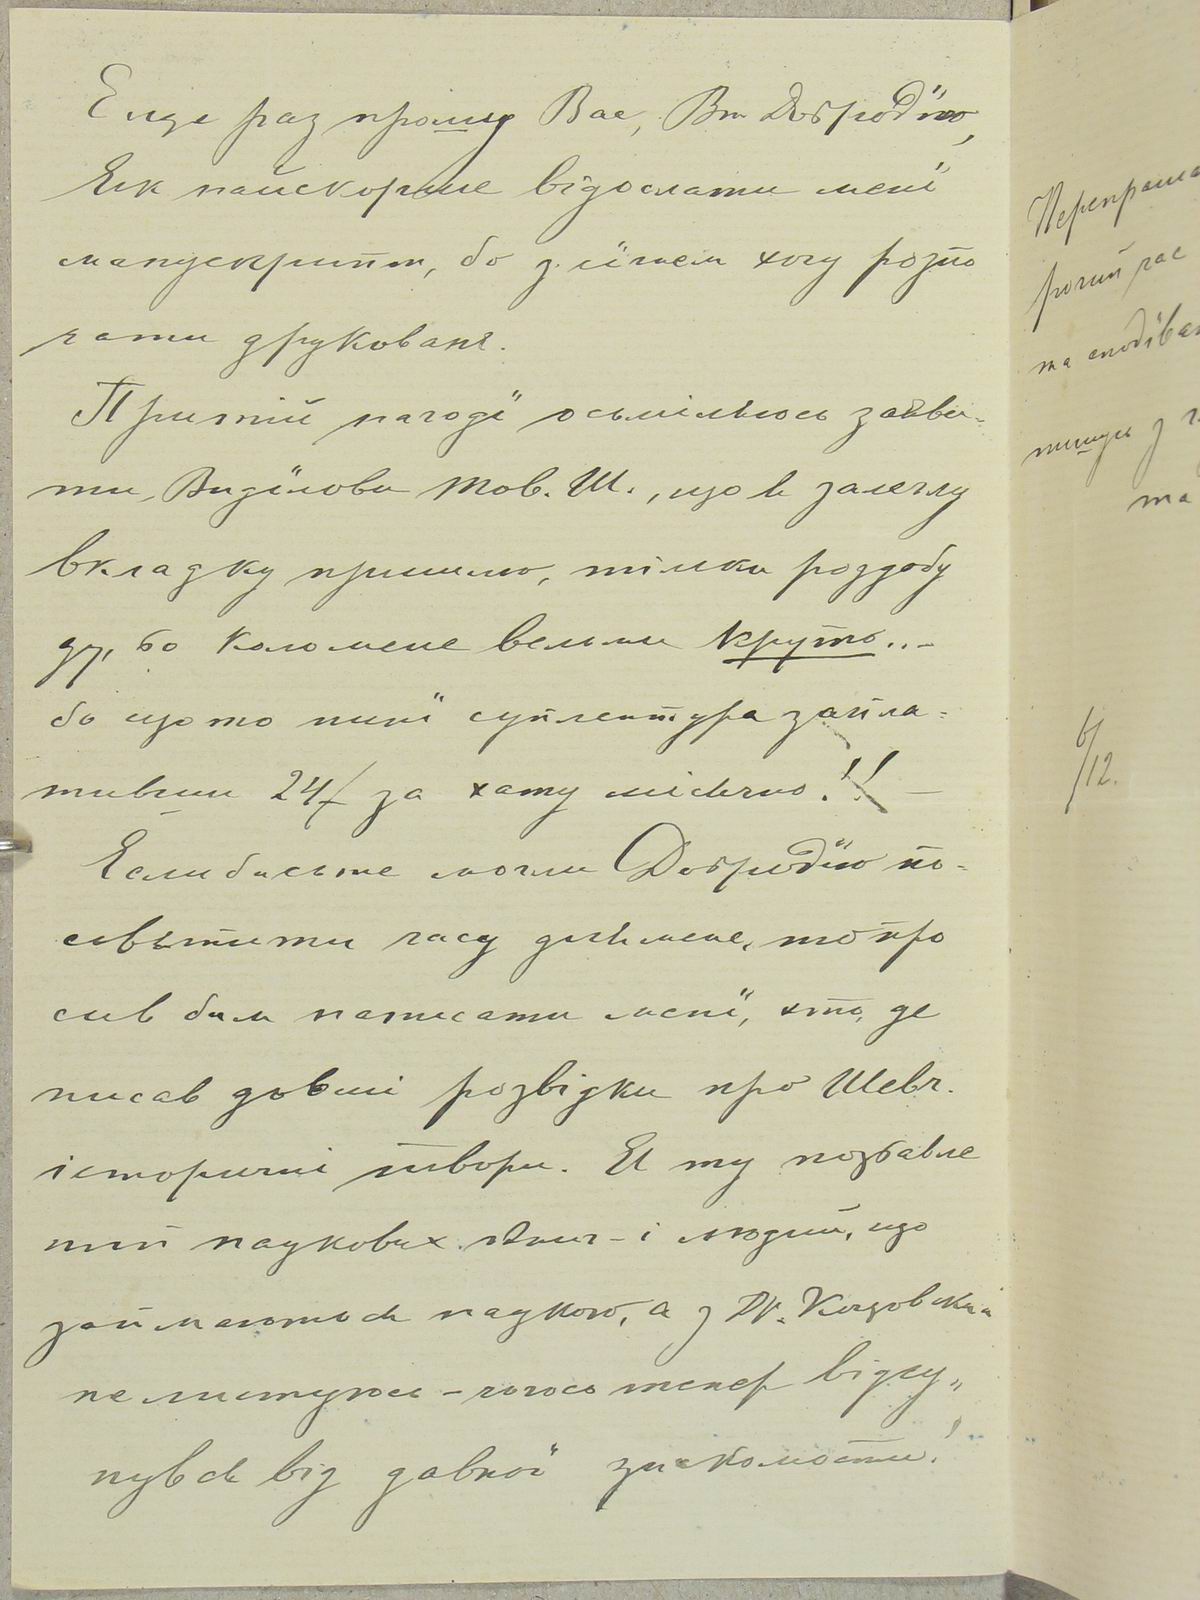 Еще раз прошу Вас, Вп Добродїю,
Як найскорше відослати менї
манускрипт, бо з сїчнем хочу розпо
чати друкованя.
При тій нагодї осьмілююсь заяви-
ти Видїлови Тов. Ш., що я залеглу
вкладку пришлю, тілько роздобу
ду, бо коло мене вельми круто...-
бо що то нинї суплентура запла-
тивши 24f за хату місячно!! -
Если бисьте могли Добродїю по-
сьвятити часу для мене, то про
сив бим написати менї, хто, де
писав довші розвідки про Шевч.
історичні твори. Я ту позбавле
ний наукових книг - і людий, що
займаються наукою, а з Др. Коцовским
не листуюсь - чогось тепер відсу„
нувся від давної знакомости!
Перепраша
рогий час
та сподїван
пишусь з
та
6/12.